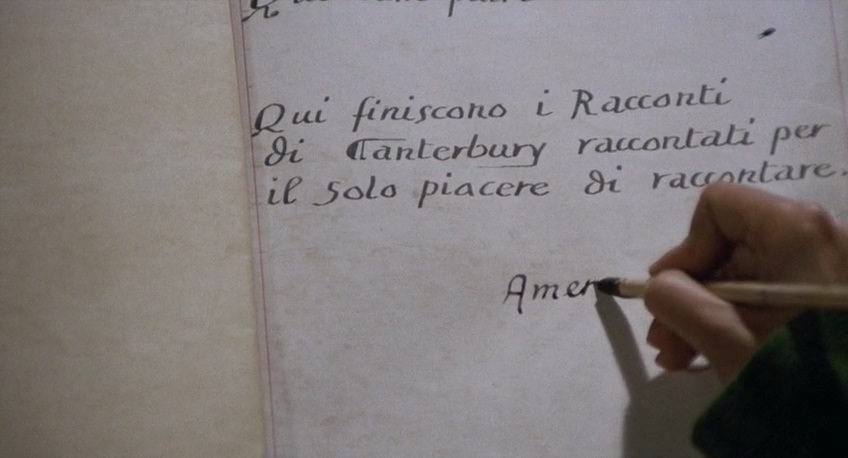 Qui finiscono i Racconti
di Canterbury raccontati per
il solo piacere di raccontare.
Amen